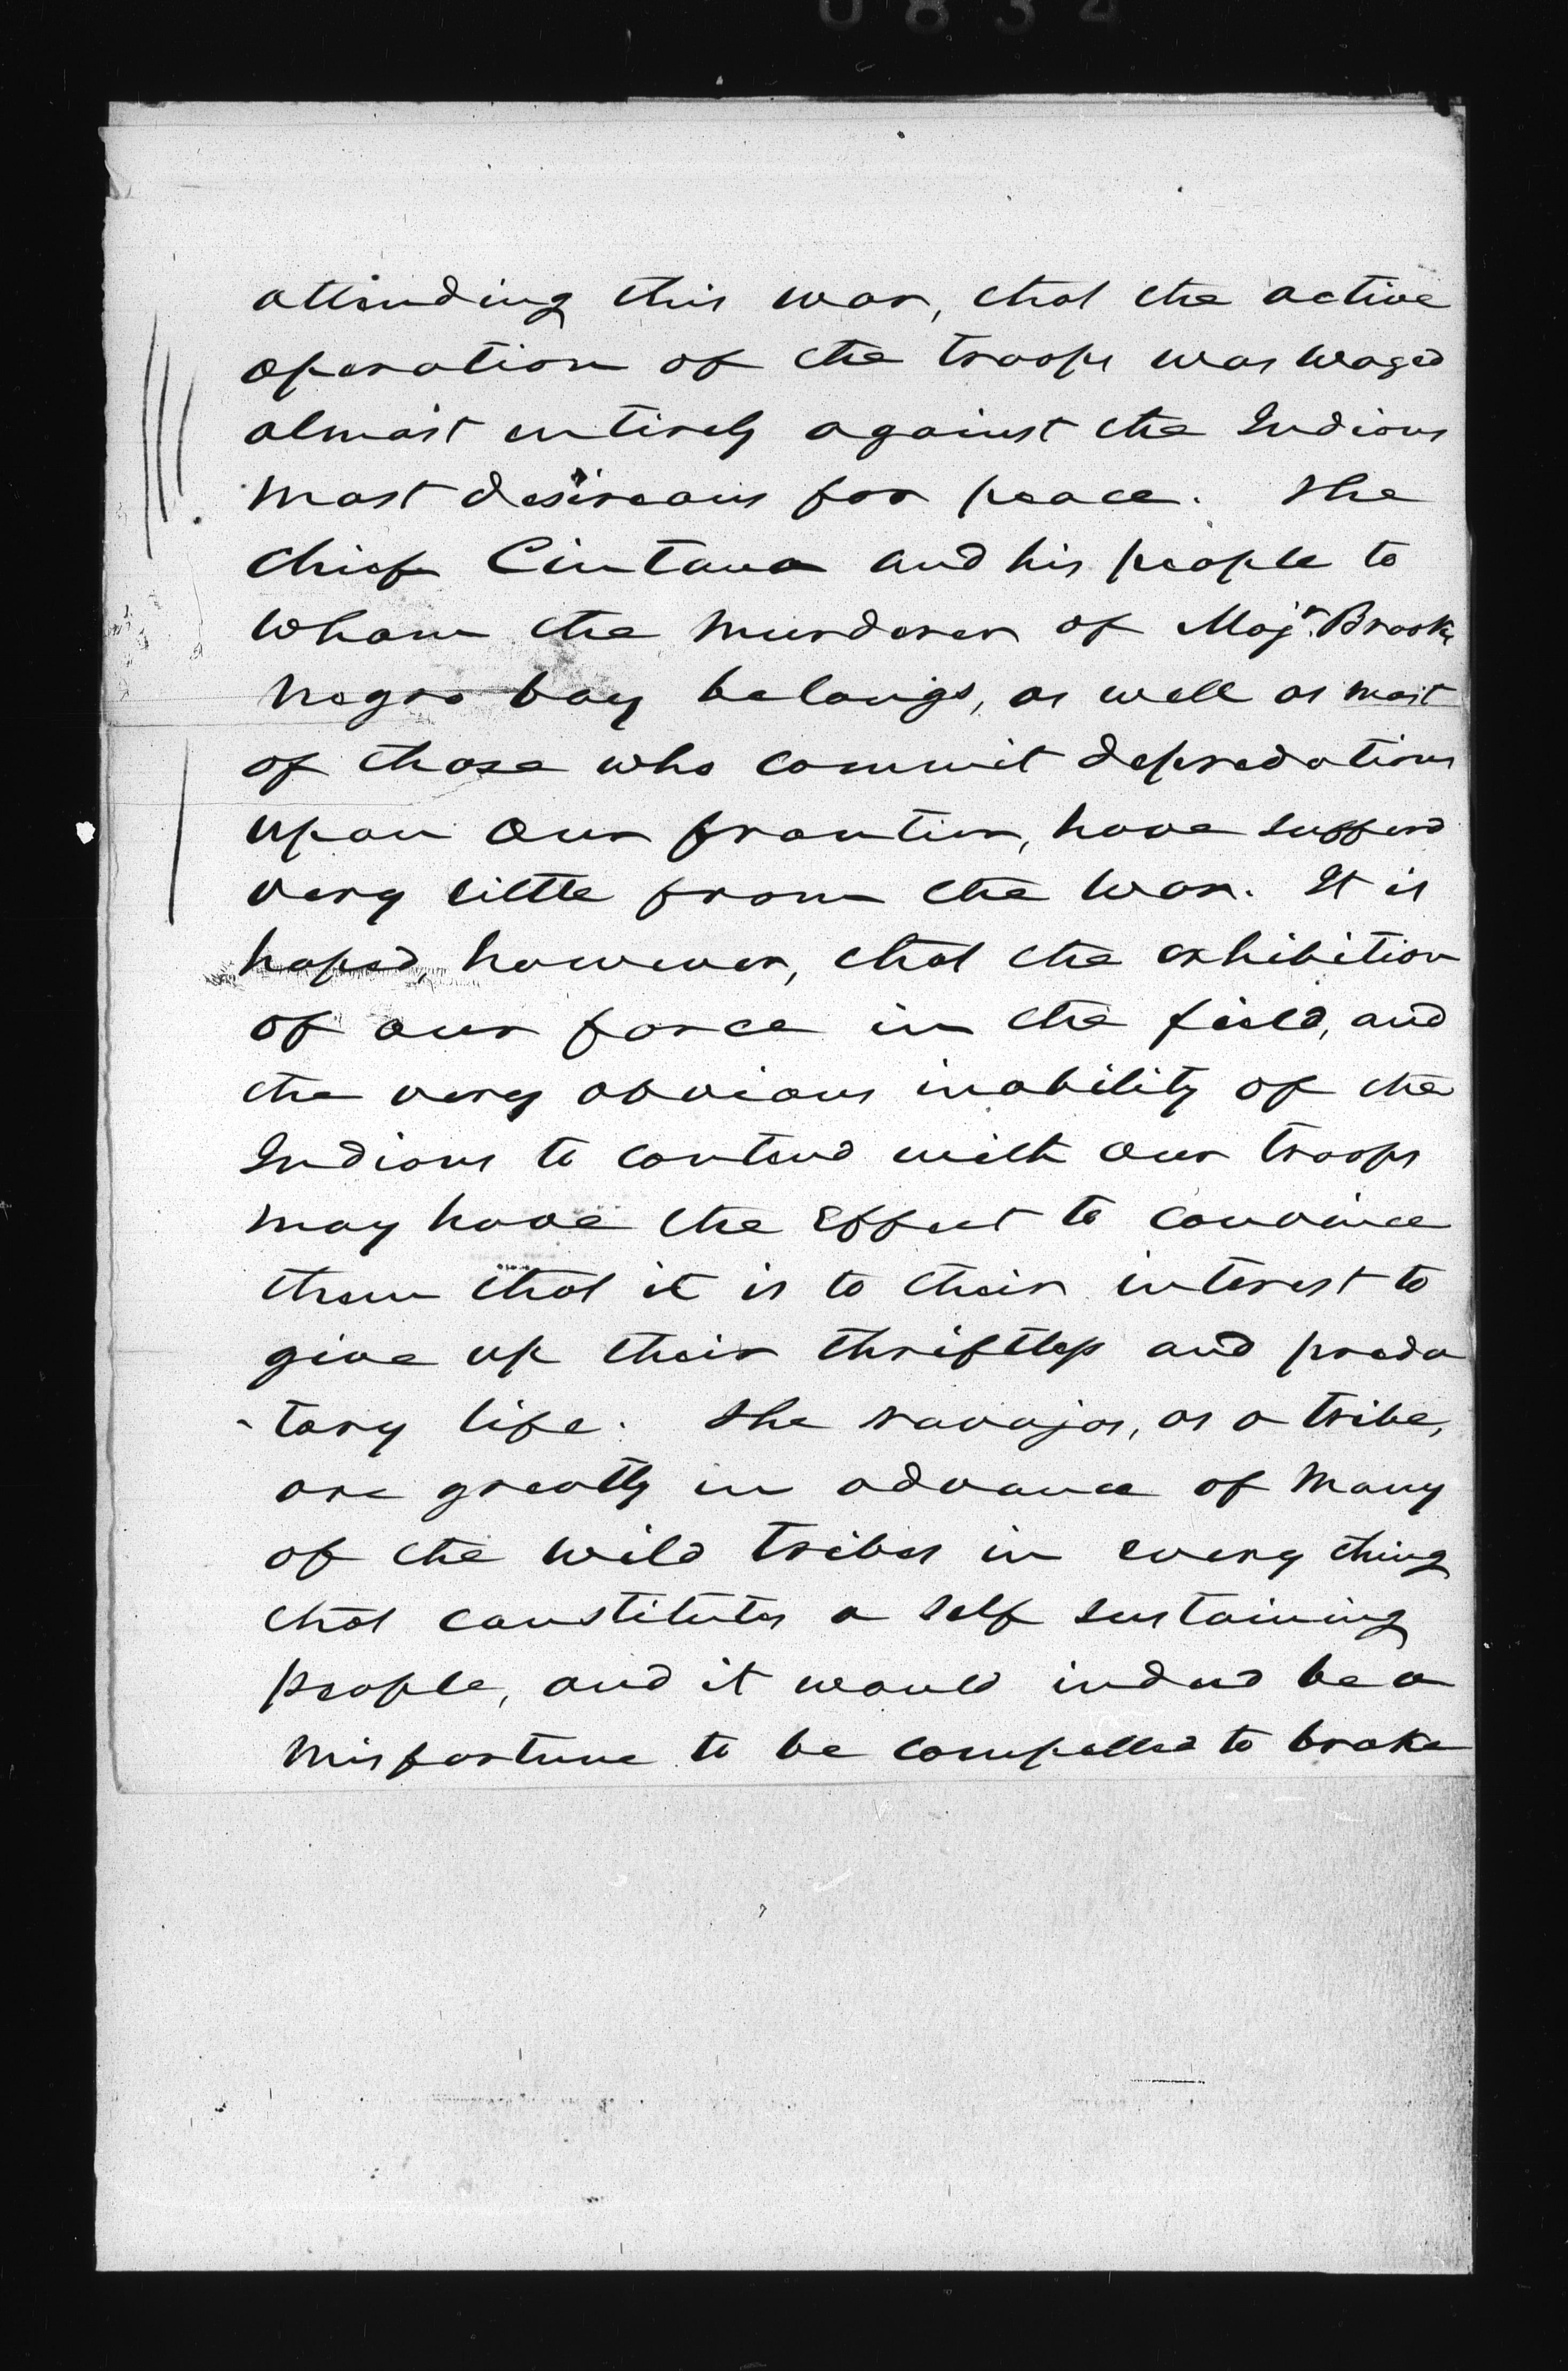 0834
attending this war, that the active
operation of the troops was waged
almost entirely against the Indians
most desireous for peace. The
chief Cintana and his people to
whom the murderer of Majr. Brooks
negro boy belongs, as well as most
of those who commit depredations
upon our frontier, have suffered
very little from the war. It is
hoped, however, that the exhibition
of our force in the field, and
the very obvious inability of the
Indians to contend with our troops
may have the effect to convince
them that it is to their interest to
give up their thriftless and preda
-tory life. The navajos, as a tribe,
are greatly in advance of many
of the wild tribes in every thing
that constitutes a self sustaining
people, and it would indeed be a
misfortune to be compelled to brake